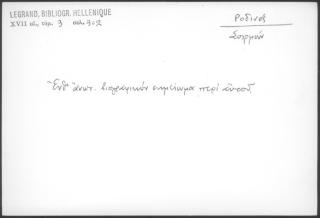 LEGRAND, BIBLIOGR. HELLENIQUE
XVII αἰ, τόμ. 3 σελ. 302
Ροδινός
Σωφρ
Ἔνθ' ἀνωτ. βιογραφικόν σημείωμα περί αὐτοῦ